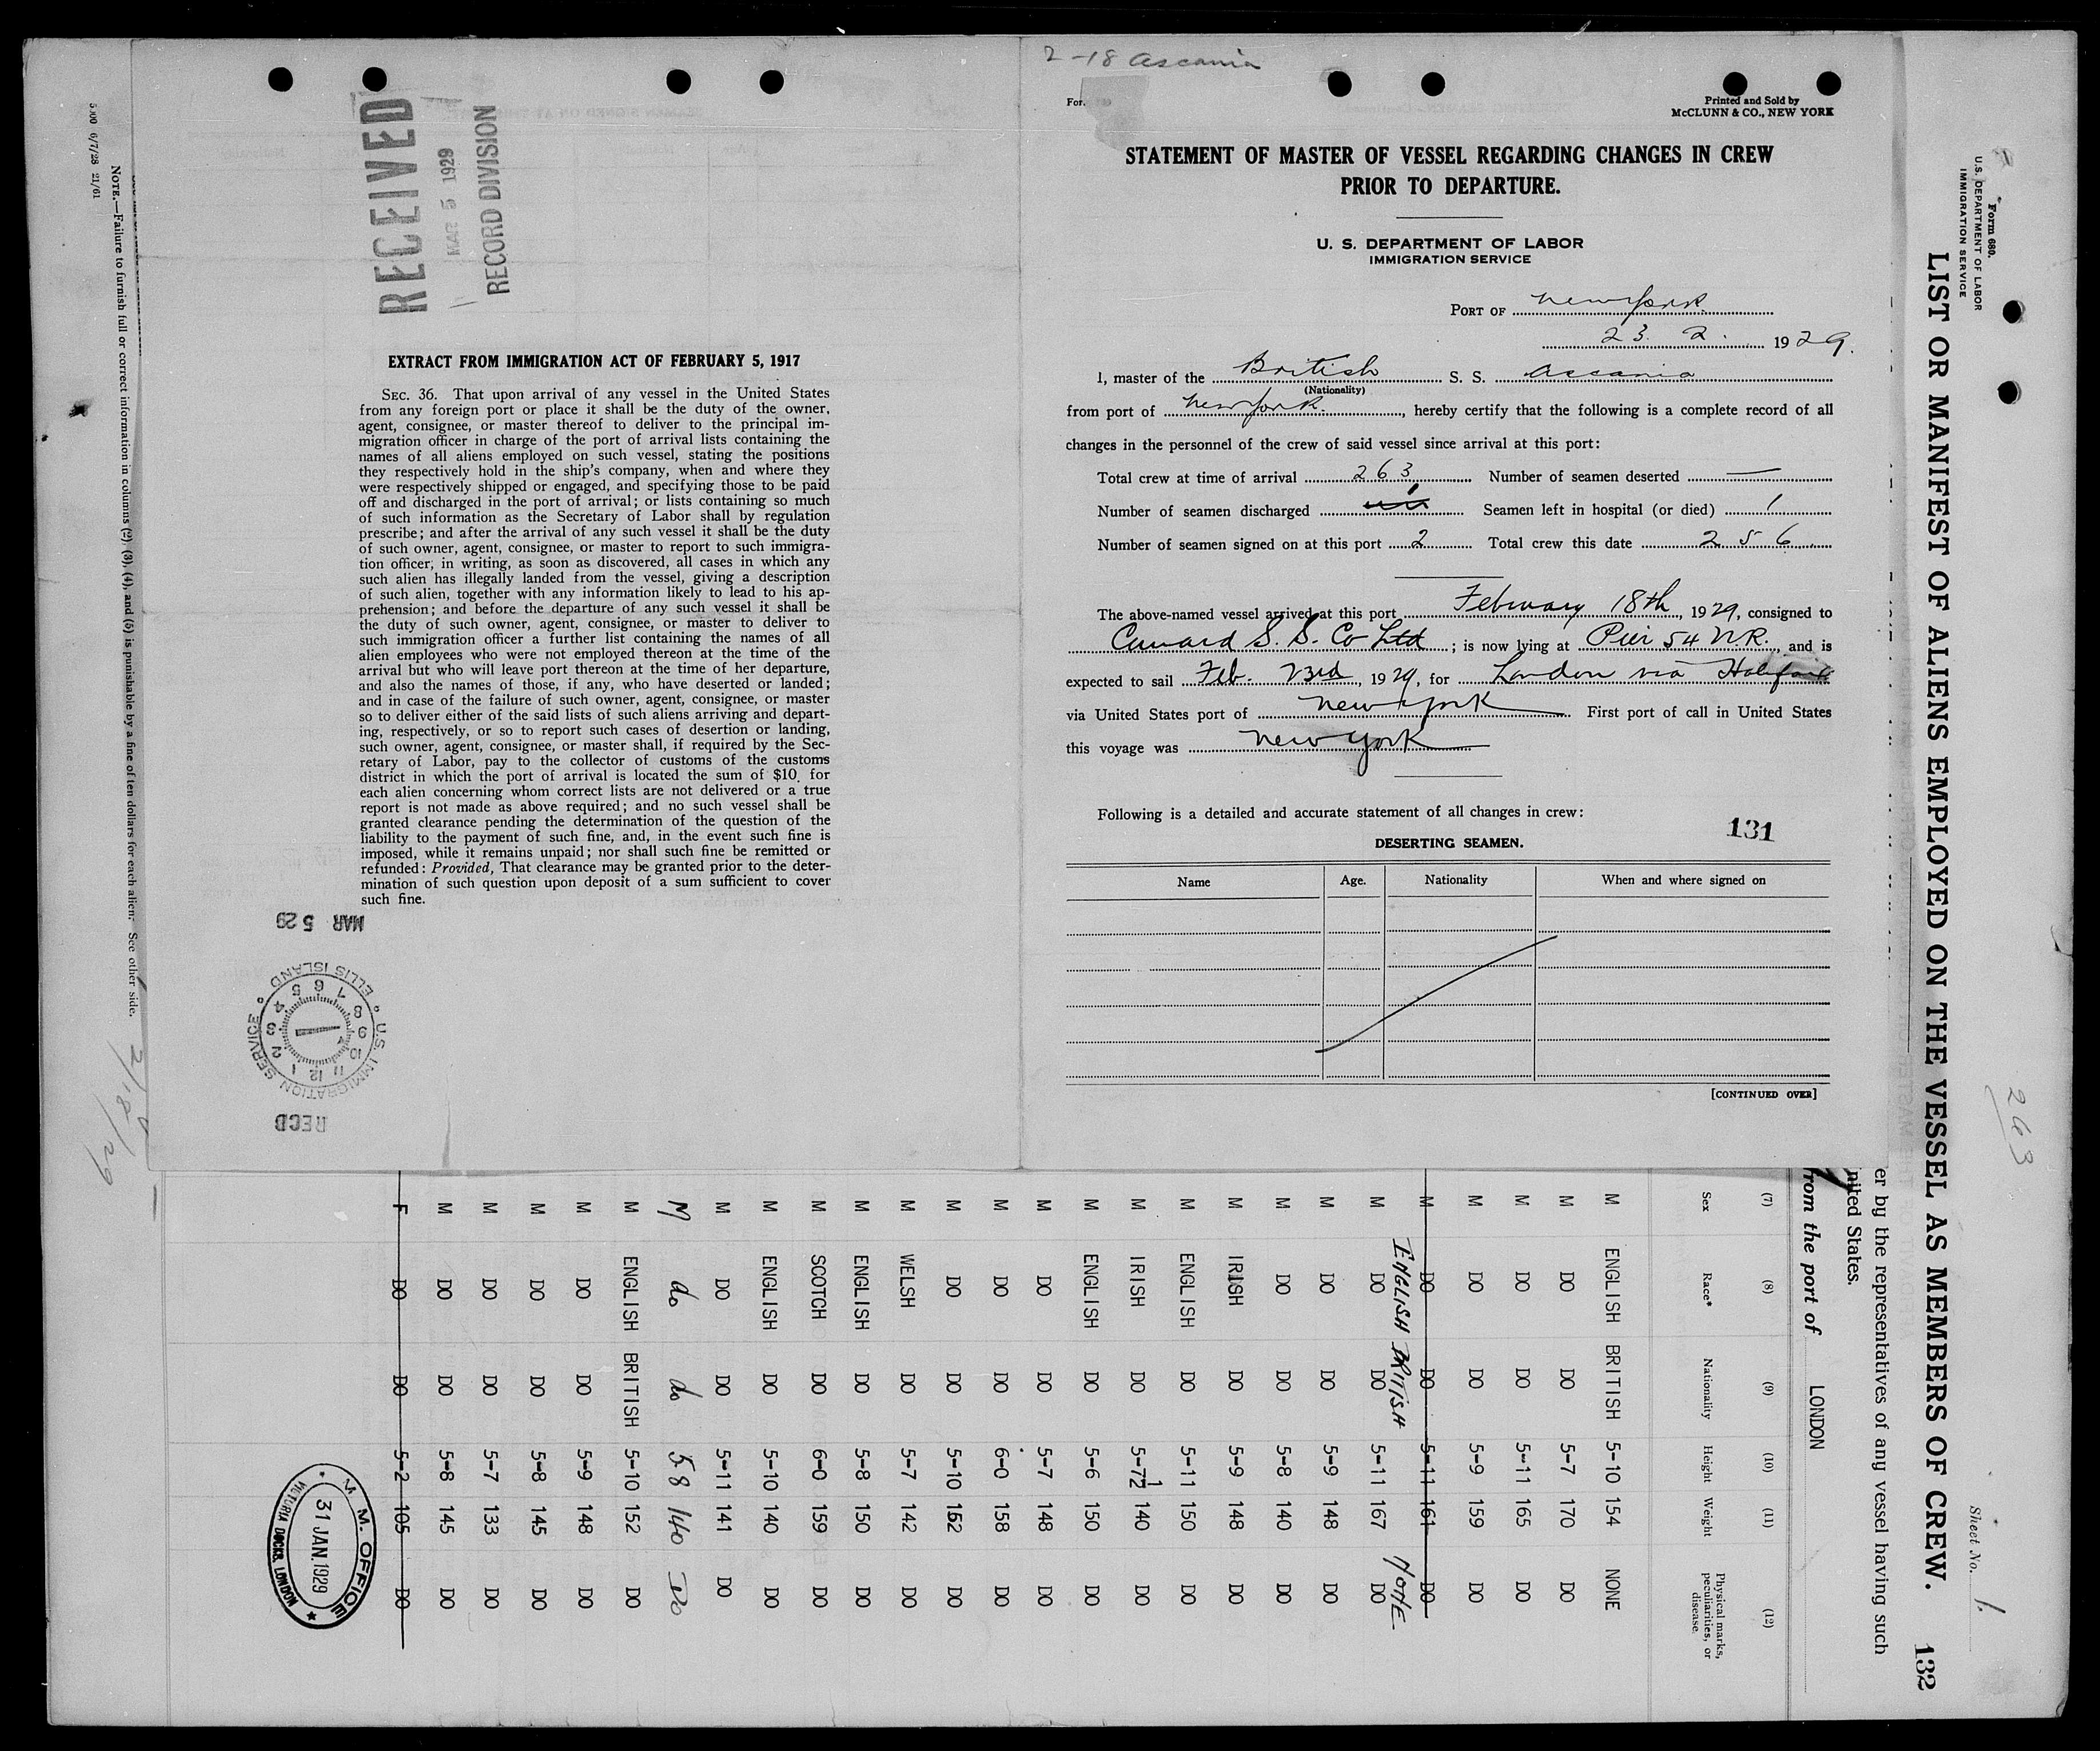 2-18 Ascania
For.
Printed and Sold by
McCLUNN & CO., NEW YORK
STATEMENT OF MASTER OF VESSEL REGARDING CHANGES IN CREW
PRIOR TO DEPARTURE.
U. S. DEPARTMENT OF LABOR
IMMIGRATION SERVICE
PORT OF New York
23. 2. 1929.
I, master of the British S. S. Ascania
(Nationality)
from port of New York, hereby certify that the following is a complete record of all
changes in the personnel of the crew of said vessel since arrival at this port:
Total crew at time of arrival 263 Number of seamen deserted —
Number of seamen discharged Seamen left in hospital (or died) 1
Number of seamen signed on at this port 2 Total crew this date 256
The above-named vessel arrived at this port February 18th, 1929, consigned to
Cunard S. S. Co Ltd; is now lying at Pier 54 N.R., and is
expected to sail Feb. 23rd, 1929, for London via Halifax
via United States port of New York First port of call in United States
this voyage was New York
Following is a detailed and accurate statement of all changes in crew:
131
DESERTING SEAMEN.
Name Age. Nationality When and where signed on
[CONTINUED OVER]
RECEIVED
MAR 5 1929
RECORD DIVISION
EXTRACT FROM IMMIGRATION ACT OF FEBRUARY 5, 1917
SEC. 36. That upon arrival of any vessel in the United States
from any foreign port or place it shall be the duty of the owner,
agent, consignee, or master thereof to deliver to the principal im-
migration officer in charge of the port of arrival lists containing the
names of all aliens employed on such vessel, stating the positions
they respectively hold in the ship's company, when and where they
were respectively shipped or engaged, and specifying those to be paid
off and discharged in the port of arrival; or lists containing so much
of such information as the Secretary of Labor shall by regulation
prescribe; and after the arrival of any such vessel it shall be the duty
of such owner, agent, consignee, or master to report to such immigra-
tion officer, in writing, as soon as discovered, all cases in which any
such alien has illegally landed from the vessel, giving a description
of such alien, together with any information likely to lead to his ap-
prehension; and before the departure of any such vessel it shall be
the duty of such owner, agent, consignee, or master to deliver to
such immigration officer a further list containing the names of all
alien employees who were not employed thereon at the time of the
arrival but who will leave port thereon at the time of her departure,
and also the names of those, if any, who have deserted or landed;
and in case of the failure of such owner, agent, consignee, or master
so to deliver either of the said lists of such aliens arriving and depart-
ing, respectively, or so to report such cases of desertion or landing,
such owner, agent, consignee, or master shall, if required by the Sec-
retary of Labor, pay to the collector of customs of the customs
district in which the port of arrival is located the sum of $10 for
each alien concerning whom correct lists are not delivered or a true
report is not made as above required; and no such vessel shall be
granted clearance pending the determination of the question of the
liability to the payment of such fine, and, in the event such fine is
imposed, while it remains unpaid; nor shall such fine be remitted or
refunded: Provided, That clearance may be granted prior to the deter-
mination of such question upon deposit of a sum sufficient to cover
such fine.
MAR 5 29
U.S. IMMIGRATION SERVICE
ELLIS ISLAND
12 1 2 3 4 5 6 7 8 9 10 11
RECD
Form 680.
U.S. DEPARTMENT OF LABOR
IMMIGRATION SERVICE
263
Sheet No. 1.
LIST OR MANIFEST OF ALIENS EMPLOYED ON THE VESSEL AS MEMBERS OF CREW. 132
er by the representatives of any vessel having such
nited States.
from the port of LONDON
(7) (8) (9) (10) (11) (12)
Sex Race* Nationality Height Weight Physical marks, peculiarities, or disease
M ENGLISH BRITISH 5-10 154 NONE
M DO DO 5-7 170 DO
M DO DO 5-11 165 DO
M DO DO 5-9 159 DO
M DO DO 5-11 161 DO
ENGLISH BRITISH NONE
M DO DO 5-11 167 DO
M DO DO 5-9 148 DO
M DO DO 5-8 140 DO
M IRISH DO 5-9 148 DO
M ENGLISH DO 5-11 150 DO
M IRISH DO 5-7½ 140 DO
M ENGLISH DO 5-6 150 DO
M DO DO 5-7 148 DO
M DO DO 6-0 158 DO
M DO DO 5-10 152 DO
M WELSH DO 5-7 142 DO
M ENGLISH DO 5-8 150 DO
M SCOTCH DO 6-0 159 DO
M ENGLISH DO 5-10 140 DO
M DO DO 5-11 141 DO
M do do 5 8 140 Do
M ENGLISH BRITISH 5-10 152 DO
M DO DO 5-9 148 DO
M DO DO 5-8 145 DO
M DO DO 5-7 133 DO
M DO DO 5-8 145 DO
F DO DO 5-2 105 DO
M. M. OFFICE
31 JAN. 1929
VICTORIA DOCKS, LONDON
NOTE.—Failure to furnish full or correct information in columns (2), (3), (4), and (5) is punishable by a fine of ten dollars for each alien. See other side.
6/7/28 21/61
2/18/29